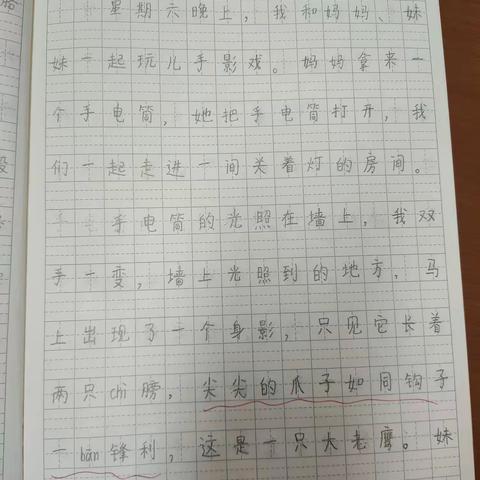 星期六晚上，我和妈妈、妹
妹一起玩儿手影戏。妈妈拿来一
个手电筒，她把手电筒打开，我
们一起走进一间关着灯的房间。
手电筒的光照在墙上，我双
手一变，墙上光照到的地方，马
上出现了一个身影，只见它长着
两只chì膀，尖尖的爪子如同钩子
一bān锋利，这是一只大老鹰。妹